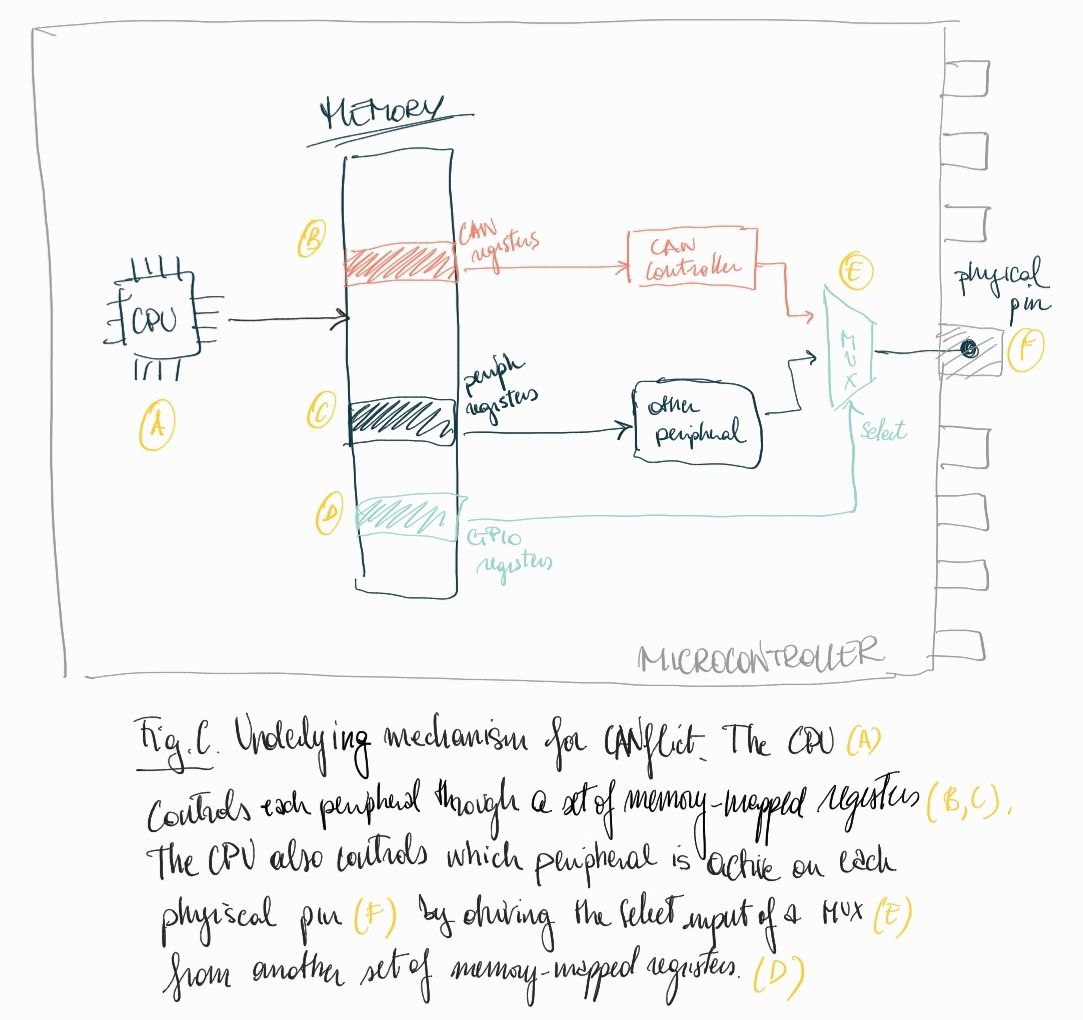 MEMORY
B
CAN
registers
CAN
controller
E
physical
pin
CPU
MUX
F
A
C
periph
registers
other
peripheral
select
D
GPIO
registers
MICROCONTROLLER
Fig. C. Underlying mechanism for CANflict. The CPU (A)
controls each peripheral through a set of memory-mapped registers (B, C).
The CPU also controls which peripheral is active on each
phyiscal pin (F) by driving the select input of a MUX (E)
from another set of memory-mapped registers. (D)